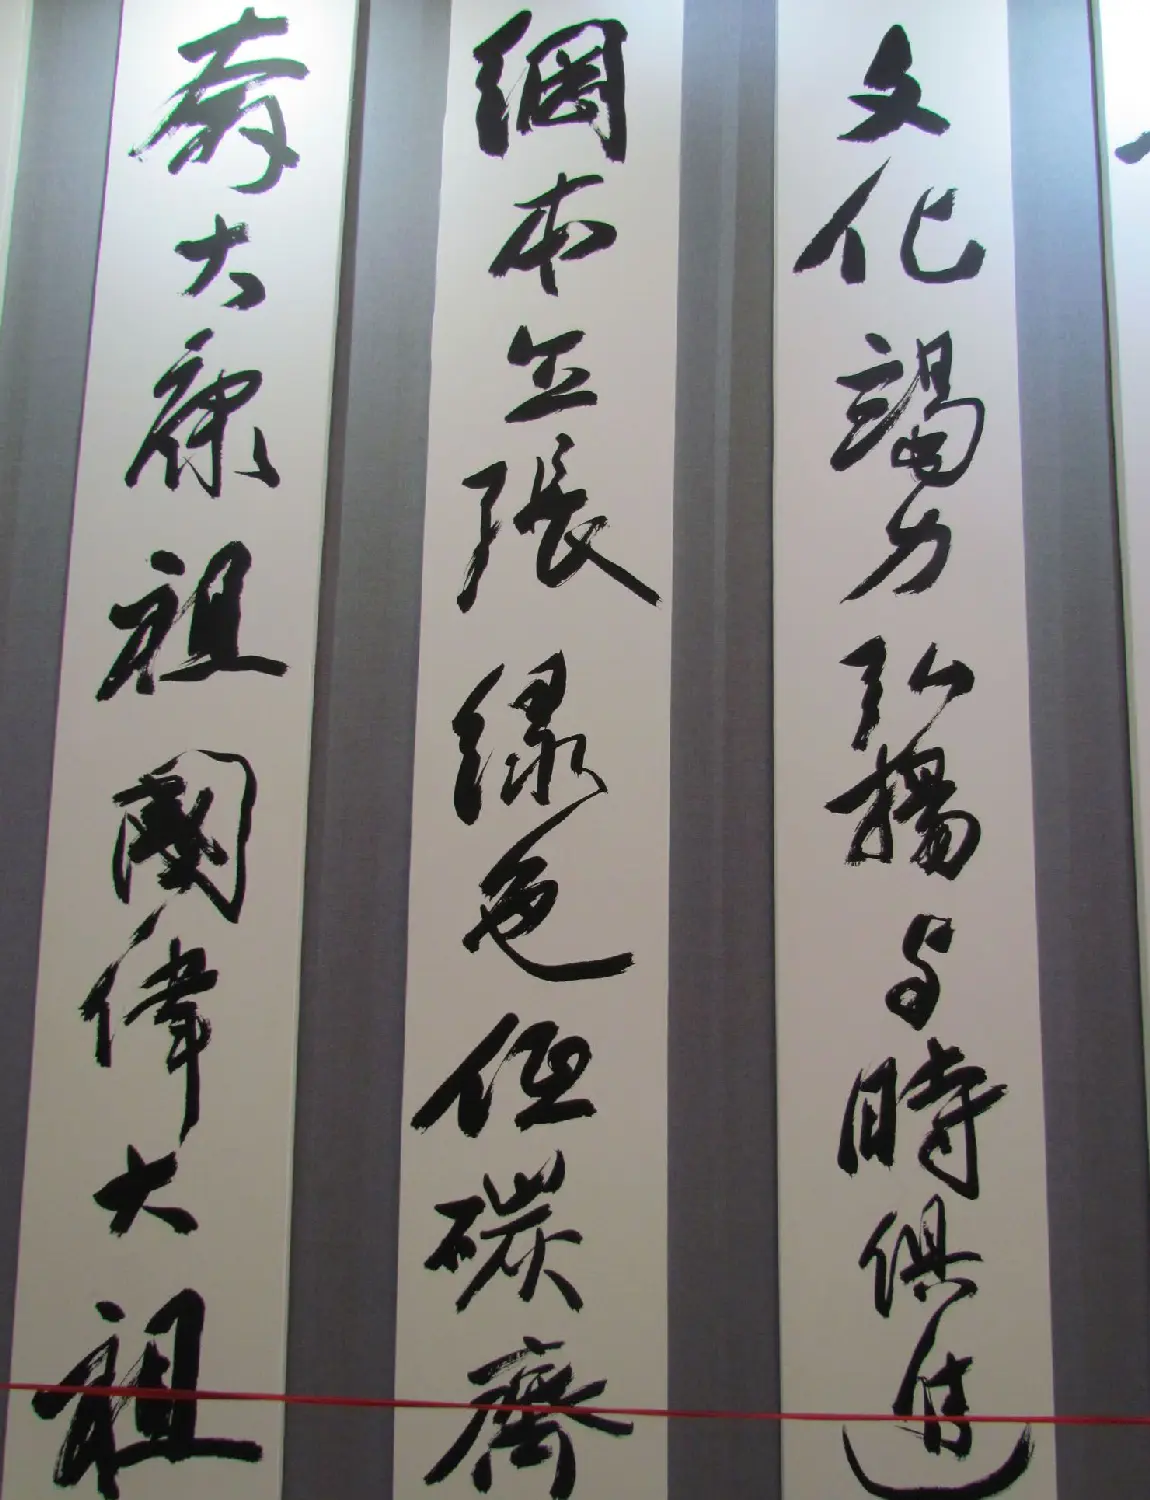 文化竭力弘揚与時俱進
綱本立張綠色低碳齊
奔大康祖國偉大祖